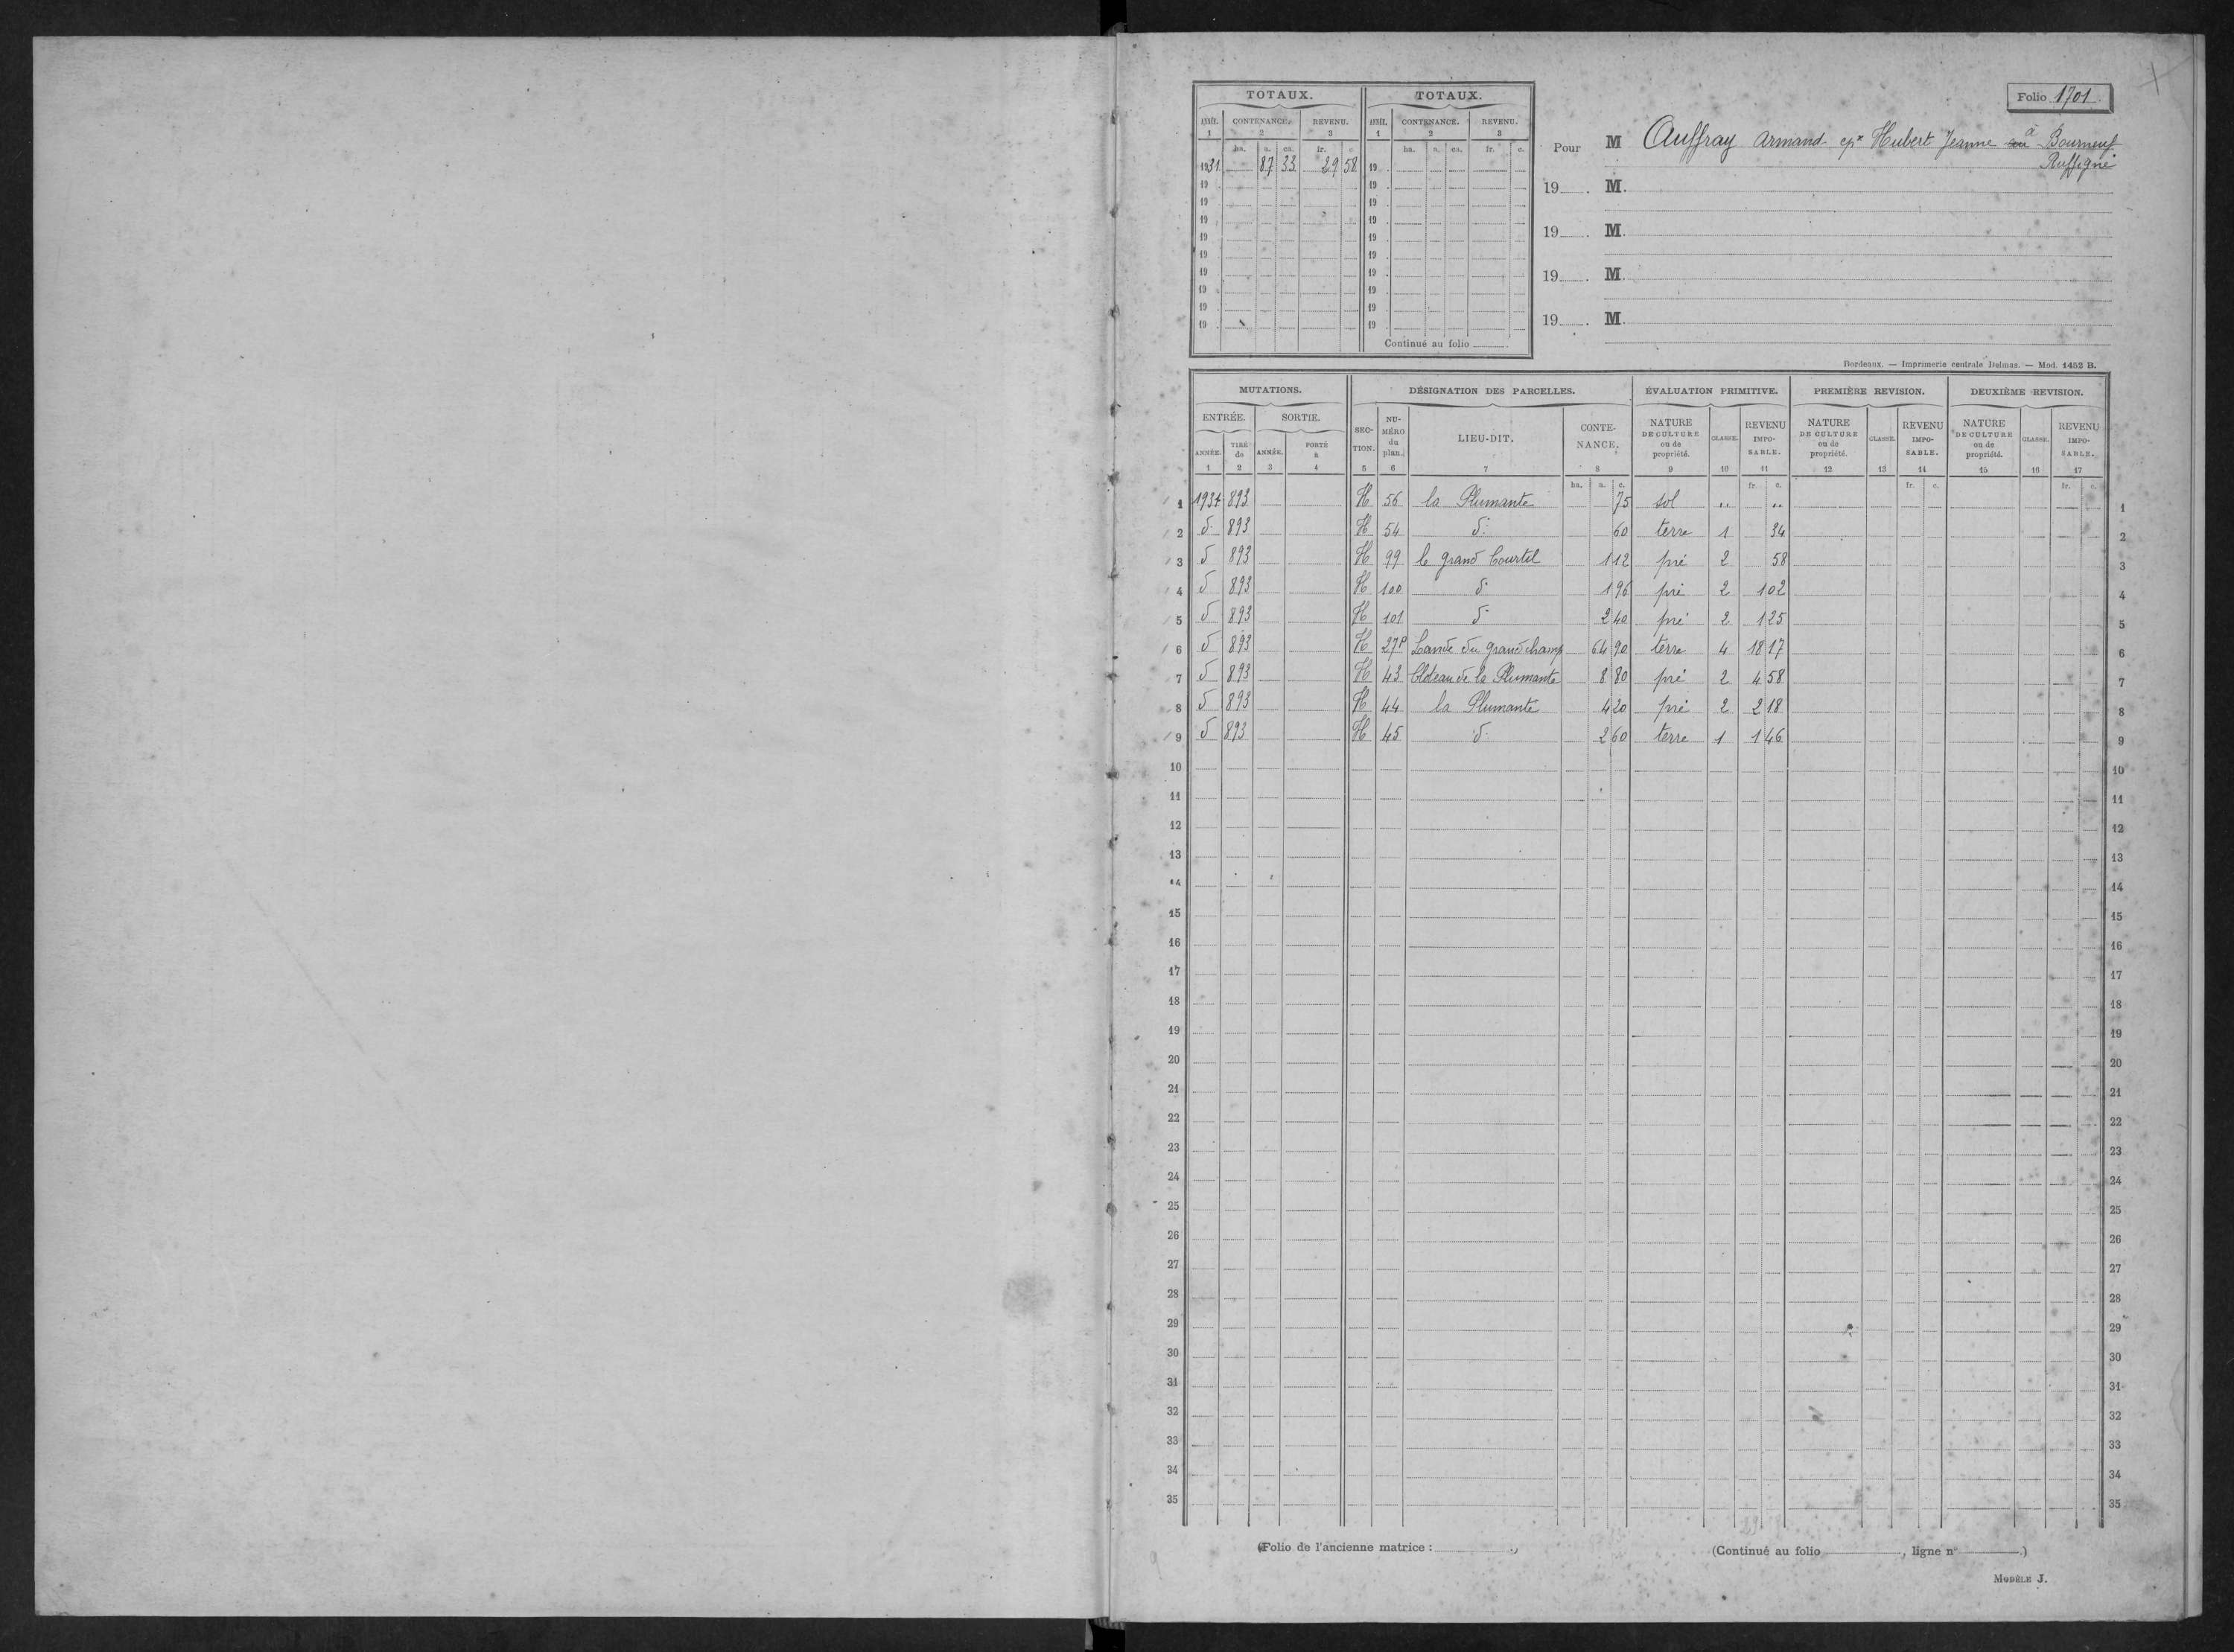 Folio 1701.
TOTAUX. TOTAUX.
ANNÉE. CONTENANCE. REVENU. ANNÉE. CONTENANCE. REVENU.
1 2 3 1 2 3
ha. a. ca. fr. c. ha. a. ca. fr. c.
1931. 87 33 29 58 19 .
19 . 19 .
19 . 19 .
19 . 19 .
19 . 19 .
19 . 19 .
19 . 19 .
19 . 19 .
19 . 19 .
19 . 19 .
Continué au folio
Pour M Auffray Armand epx Hubert Jeanne au à Bourneuf
Ruffigné
19 . M.
19 . M.
19 . M.
19 . M.
Bordeaux. — Imprimerie centrale Delmas. — Mod. 1452 B.
MUTATIONS. DÉSIGNATION DES PARCELLES. ÉVALUATION PRIMITIVE. PREMIÈRE REVISION. DEUXIÈME REVISION.
ENTRÉE. SORTIE. SECTION. NUMÉRO du plan. LIEU-DIT. CONTENANCE. NATURE DE CULTURE ou de propriété. CLASSE. REVENU IMPOSABLE. NATURE DE CULTURE ou de propriété. CLASSE. REVENU IMPOSABLE. NATURE DE CULTURE ou de propriété. CLASSE. REVENU IMPOSABLE.
ANNÉE. TIRÉ de ANNÉE. PORTÉ à
1 2 3 4 5 6 7 8 9 10 11 12 13 14 15 16 17
ha. a. c. fr. c. fr. c. fr. c.
1 1931 893 H 56 la Plumante 75 sol " " 1
2 d° 893 H 54 d° 60 terre 1 34 2
3 d° 893 H 99 le grand Courtil 1 12 pré 2 58 3
4 d° 893 H 100 d° 1 96 pré 2 1 02 4
5 d° 893 H 101 d° 2 40 pré 2 1 25 5
6 d° 893 H 27p Lande du grand champ 64 90 terre 4 18 17 6
7 d° 893 H 43 Cloteau de la Plumante 8 80 pré 2 4 58 7
8 d° 893 H 44 la Plumante 4 20 pré 2 2 18 8
9 d° 893 H 45 d° 2 60 terre 1 1 46 9
10 10
11 11
12 12
13 13
14 14
15 15
16 16
17 17
18 18
19 19
20 20
21 21
22 22
23 23
24 24
25 25
26 26
27 27
28 28
29 29
30 30
31 31
32 32
33 33
34 34
35 35
(Folio de l'ancienne matrice : .)
(Continué au folio , ligne n° .)
MODÈLE J.